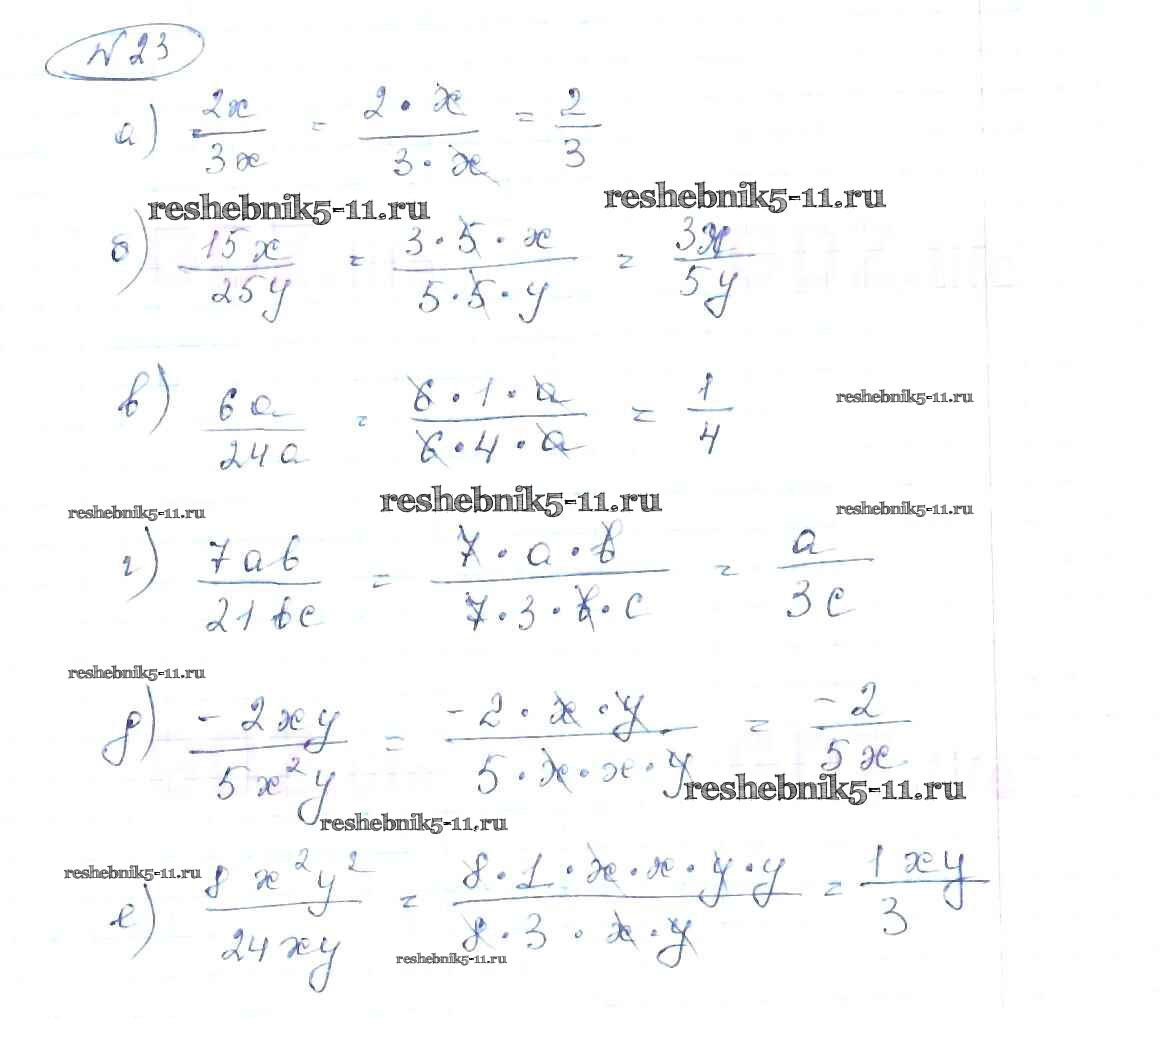 №23
а) 2x/3x = 2·x/3·x = 2/3
reshebnik5-11.ru reshebnik5-11.ru
б) 15x/25y = 3·5·x/5·5·y = 3x/5y
в) 6a/24a = 6·1·a/6·4·a = 1/4
reshebnik5-11.ru
reshebnik5-11.ru reshebnik5-11.ru reshebnik5-11.ru
г) 7ab/21bc = 7·a·b/7·3·b·c = a/3c
reshebnik5-11.ru
д) -2xy/5x²y = -2·x·y/5·x·x·y = -2/5x
reshebnik5-11.ru
reshebnik5-11.ru
reshebnik5-11.ru
е) 8x²y²/24xy = 8·1·x·x·y·y/8·3·x·y = 1xy/3
reshebnik5-11.ru